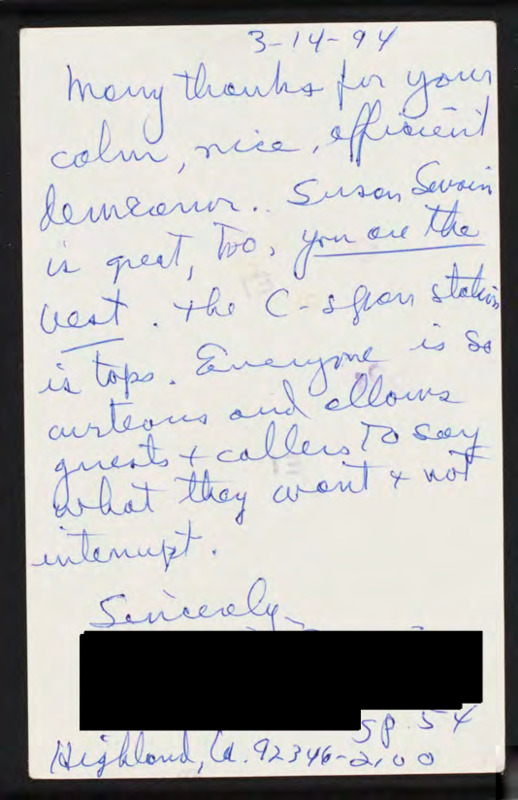 3-14-94
Many thanks for your
calm, nice, efficient
demeanor.. Susan Swain
is great, too, you are the
best. the C-span station
is tops. Everyone is so
curteous and allows
guests + callers to say
what they want + not
interrupt.
Sincerely,
sp. 54
Highland, Ca. 92346-2100